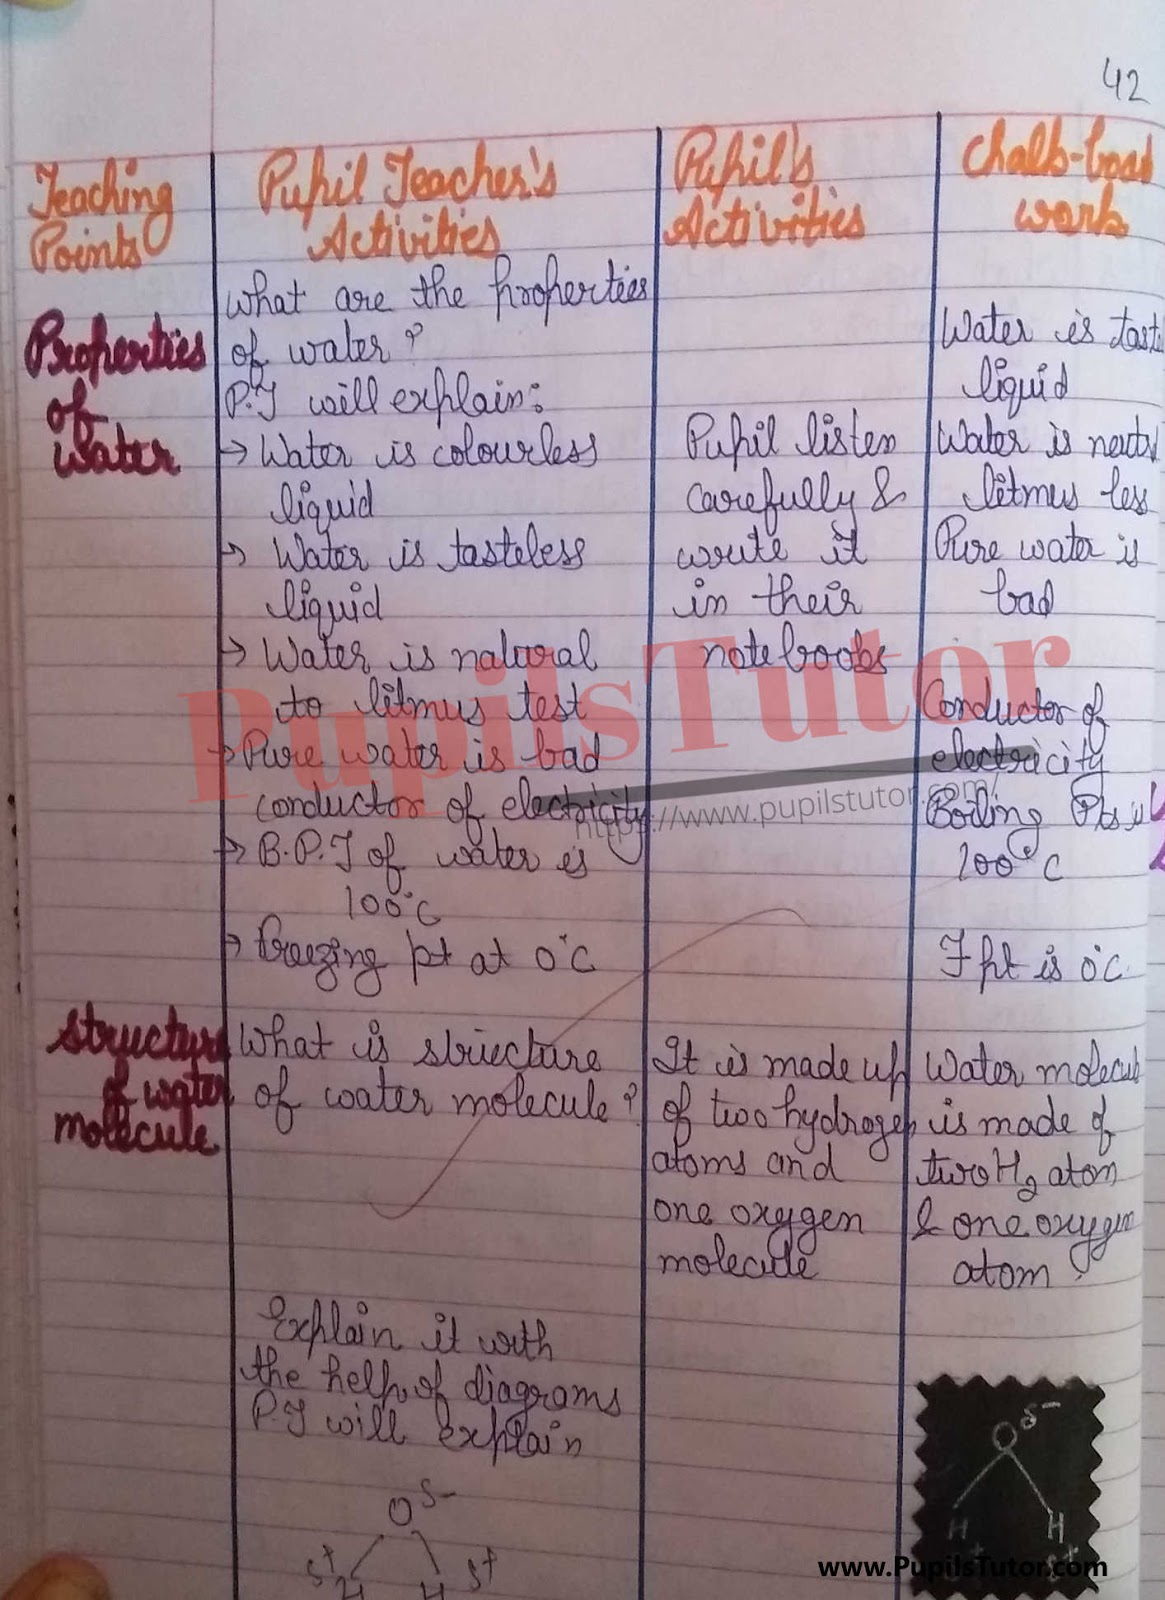 42
Teaching
Points
Pupil Teacher's
Activities
Pupil's
Activities
Chalk-boad
work
Properties
of
water
What are the properties
of water?
P.T will explain:
→ Water is colourless
liquid
→ Water is tasteless
liquid
→ Water is natural
to litmus test
→ Pure water is bad
conductor of electricity
→ B.P.T of water is
100°C
→ Freezing pt at 0°C
Pupil listen
carefully &
write it
in their
notebooks
Water is
liquid
Water is
litmus less
Pure water is
bad
Conductor of
electricity
Boiling Pts is
100°C
F pt is 0°C
Structure
of water
molecule
What is structure
of water molecule?
It is made up
of two hydrogen
atoms and
one oxygen
molecule
Water molecule
is made of
two H2 atom
& one oxygen
atom
Explain it with
the help of diagrams
P.T will explain
O δ-
δ+ H H δ+
O δ-
H H
+ δ+
PupilsTutor
https://www.pupilstutor.com
www.PupilsTutor.com